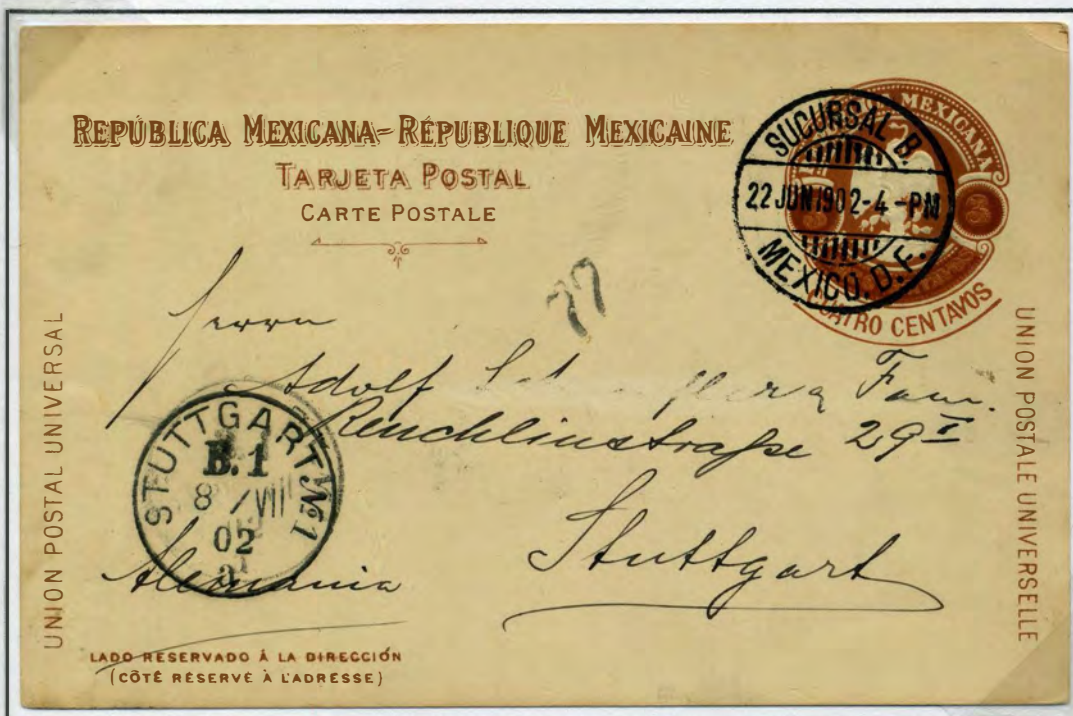 REPÚBLICA MEXICANA=RÉPUBLIQUE MEXICAINE
TARJETA POSTAL
CARTE POSTALE
MEXICANA
CUATRO CENTAVOS
SUCURSAL B.
22 JUN 1902-4-PM
MEXICO. D. F.
UNION POSTAL UNIVERSAL
UNION POSTALE UNIVERSELLE
Herrn
Adolf & Fam.
Reuchlinstraße 29 I
Stuttgart
Alemania
STUTTGART № 1
B. 1
8 / VII
02
LADO RESERVADO Á LA DIRECCIÓN
(CÔTÉ RÉSERVÉ À L'ADRESSE)